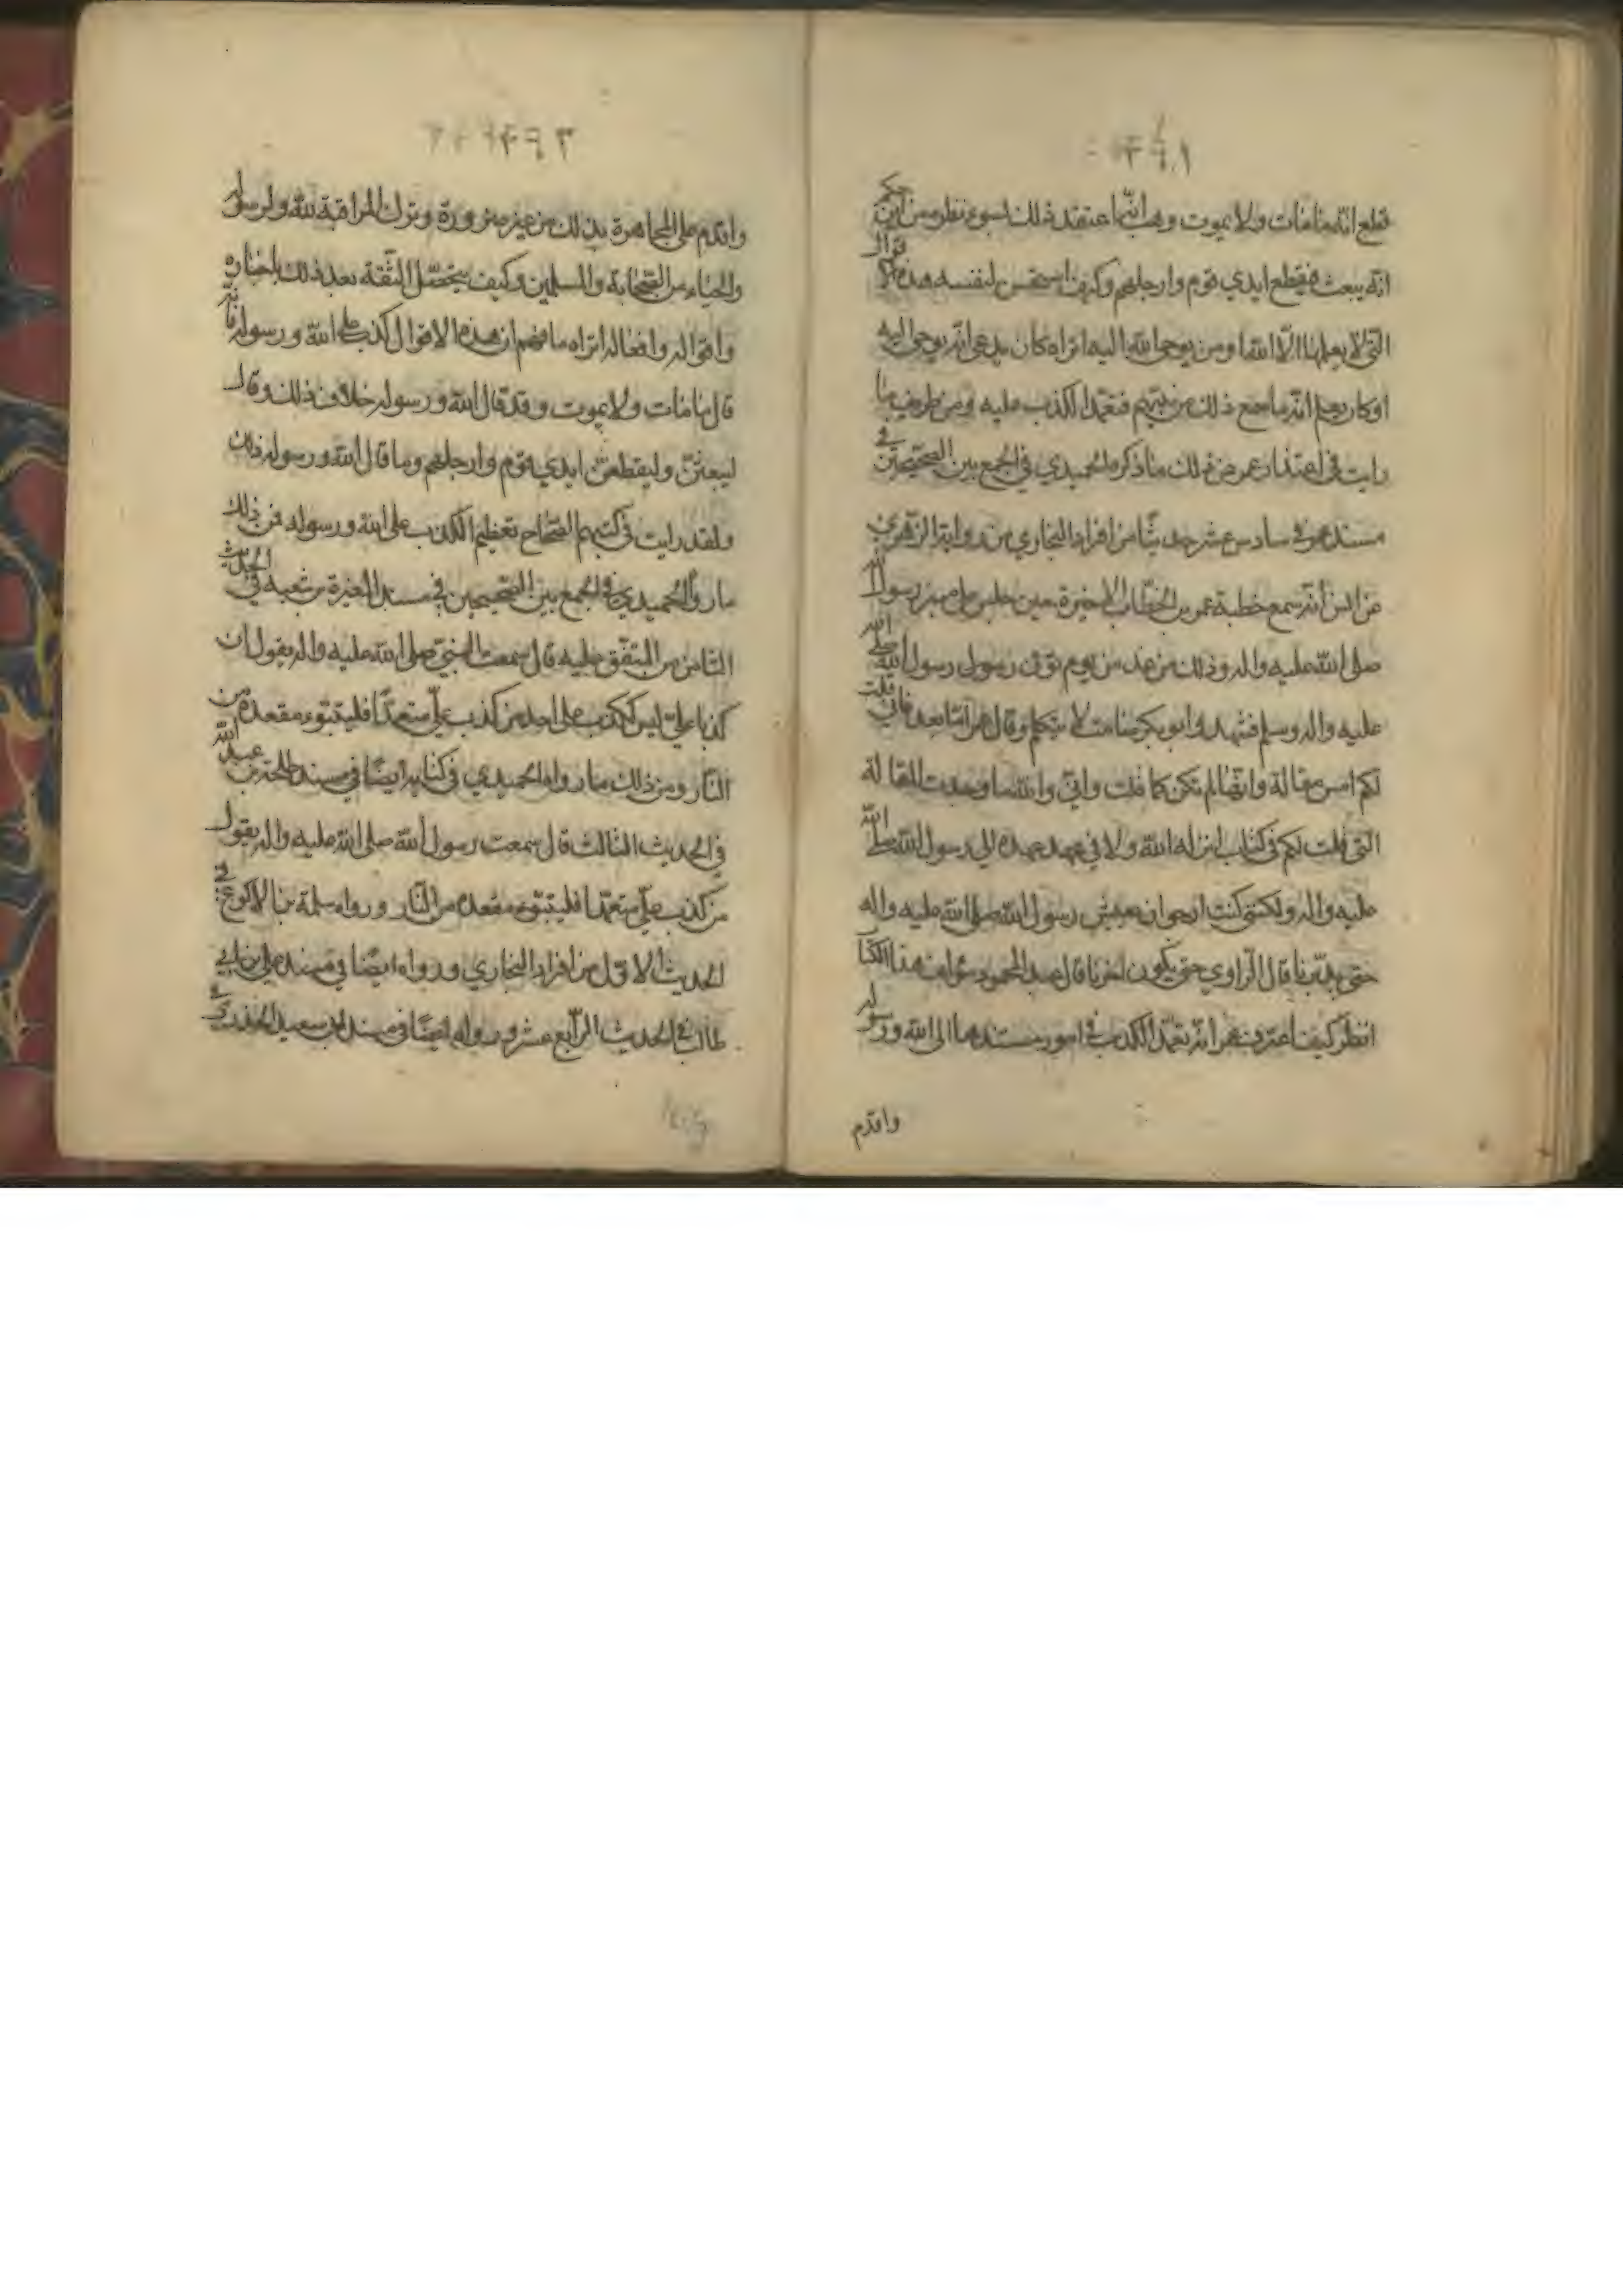 قطع انه ما مات ولا يموت وهب انّما اعتقد ذلك لسوء نظره من اين حكم
انّه يبعث فيقطع ايدي قوم وارجلهم وكيف استحسن لنفسه هذه الاقوال
التي لا يعلمها الّا الله او من يوحي الله اليه اتراه كان يدعي انّه يوحي اليه
او كان يعلم انّه ما سمع ذلك من نبيهم فتعمّد الكذب عليه ومن طريف ما
رايت في اعتذار عمر من ذلك ما ذكره الحميدي في الجمع بين الصّحيحين في
مسند عمر في سادس عشر حديثًا من افراد البخاري من رواية الزهري
عن انس انّه سمع خطبة عمر بن الخطّاب الاخيرة حين جلس على منبر رسول الله
صلى الله عليه واله وذلك من غد من يوم توفى رسول رسول الله صلى الله
عليه واله وسلم فتشهد وابو بكر صامت لا يتكلم وقال عمر امّا بعد فاني قلت
لكم امس مقالة وانّها لم تكن كما قلت واني والله ما وجدت المقالة
التي قلت لكم في كتاب انزله الله ولا في عهد عهده الي رسول الله صلى الله
عليه واله ولكني كنت ارجو ان يعيش رسول الله صلى الله عليه واله
حتى يدبّرنا قال الرّاوي حتى يكون اخرنا قال عبد المحمود مؤلف هذا الكتا
انظر كيف اعترف عمر انّه تعمّد الكذب في امور يسندها الى الله ورسوله
واقدم
واقدم على المجاهرة بذلك من غير ضرورة وترك المراقبة لله ولرسوله
والحياء من الصّحابة والمسلمين وكيف يتحصّل الثّقة بعد ذلك باخباره
واقواله وافعاله اتراه ما فهم ان هذه الاقوال كذب على الله ورسوله فانّه
قال ما مات ولا يموت وقد قال الله ورسوله خلاف ذلك وقال
ليبعثنّ وليقطعنّ ايدي قوم وارجلهم وما قال الله ورسوله ذلك
ولقد رايت في كتبهم الصّحاح تعظيم الكذب على الله ورسوله فمن ذلك
ما رواه الحميدي في الجمع بين الصّحيحين في مسند المغيرة بن شعبه في الحديث
الثامن من المتفّق عليه قال سمعت النبيّ صلى الله عليه واله يقول ان
كذبا عليّ ليس ككذب على احد من كذب عليّ متعمدًا فليتبّوء مقعده من
النّار ومن ذلك ما رواه الحميدي في كتابه ايضًا في مسند طلحة بن عبيد الله
في الحديث الثالث قال سمعت رسول الله صلى الله عليه واله يقول
من كذب عليّ متعمّدا فليتبّوء مقعده من النّار ورواه سلمة بن الاكوع في
الحديث الاوّل من افراد البخاري ورواه ايضًا في مسند علي بن ابي
طالب في الحديث الرّابع عشر ورواه ايضًا في مسند ابي سعيد الخدري في